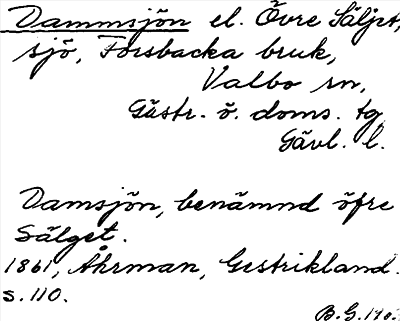 Dammsjön el. Övre Säljet,
sjö, Forsbacka bruk,
Valbo sn,
Gästr. ö. doms. tg
Gävl. l.
Damsjön, benämnd öfre
Sälget.
1861, Åhrman, Gestrikland.
s. 110.
B.G.